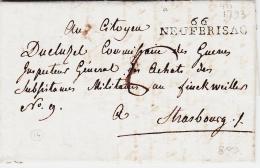 Au Citoyen
66
NEUFBRISAC
Duclusel Commissaire des Guerres
Inspecteur Général des Achats des
Subsistances Militaires au finckweiller
No. 9.
a Strasbourg /.